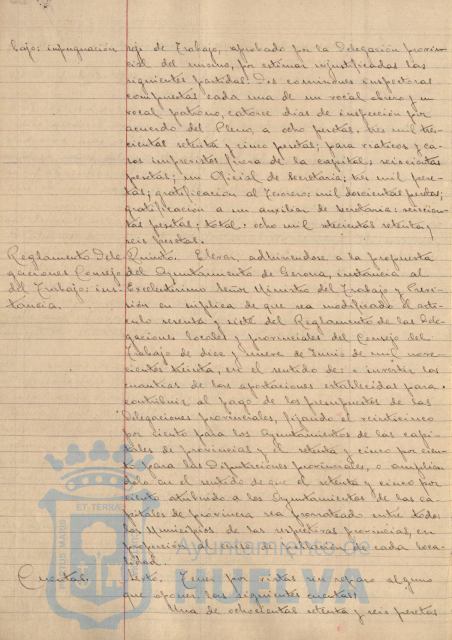 bajo: impugnación
sejo de Trabajo, aprobado por la Delegación provin-
cial del mismo, por estimar injustificadas las
siguientes partidas: Dos comisiones inspectoras
compuestas cada una de un vocal obrero y un
vocal patrono, catorce dias de inspección por
acuerdo del Pleno, a ocho pesetas, tres mil tres-
cientas setenta y cinco pesetas; para viaticos y ca-
sos imprevistos fuera de la capital, seiscientas
pesetas; un Oficial de Secretaria: tres mil pese-
tas; gratificación al Tesorero: mil doscientas pesetas;
gratificación a un auxiliar de Secretaria: seiscien-
tas pesetas; total: ocho mil setecientas setenta y
seis pesetas.
Reglamento Dele-
gaciones Consejo
del Trabajo: ins-
tancia.
Quinto. Elevar, adhiriendose a la propuesta
del Ayuntamiento de Gerona, instancia al
Excelentisimo Señor Ministro del Trabajo y Previ-
sión en súplica de que sea modificado el artí-
culo sesenta y siete del Reglamento de las Dele-
gaciones locales y provinciales del Consejo del
Trabajo de diez y nueve de Junio de mil nove-
cientos treinta, en el sentido de: o invertir las
cuantias de las aportaciones establecidas para
contribuir al pago de los presupuestos de las
Delegaciones provinciales, fijando el veinticinco
por ciento para los Ayuntamientos de las capi-
tales de provincias y el setenta y cinco por cien-
to para las Diputaciones provinciales, o amplian-
dolo en el sentido de que el setenta y cinco por
ciento atribuido a los Ayuntamientos de las ca-
pitales de provincia sea prorrateado entre todos
los Municipios de las respectivas provincias, en
proporción al censo de cada loca-
lidad.
Cuentas.
Sexto. Tener por vistas sin reparo alguno
que oponer, las siguientes cuentas:
Una de ochocientas setenta y seis pesetas
ET TERRÆ
Ayuntamiento de
HUELVA